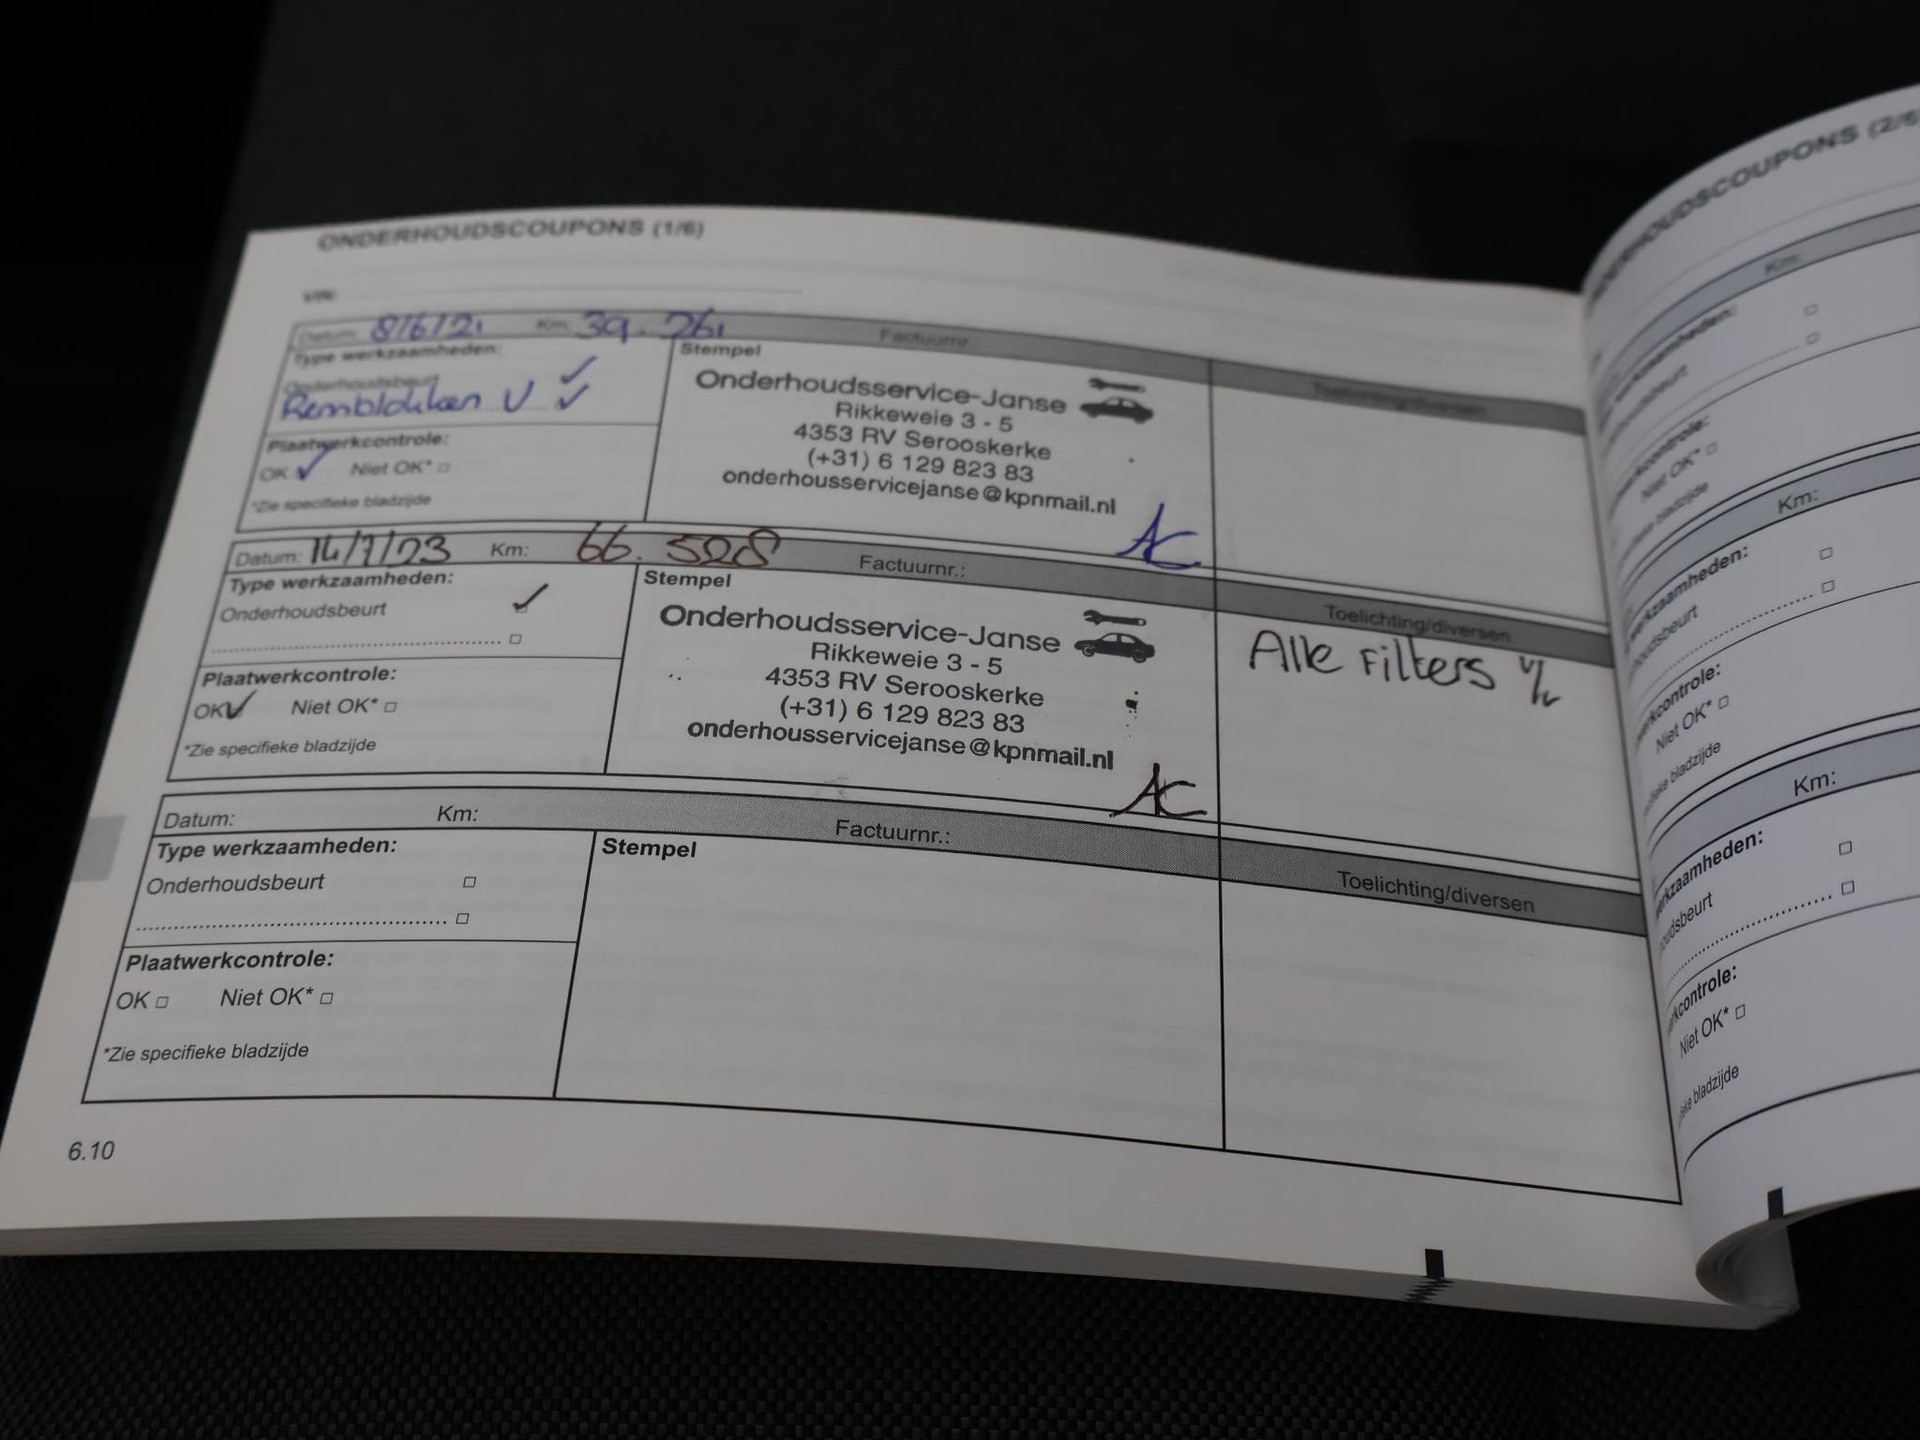 ONDERHOUDSCOUPONS (1/6)
VIN:
Datum: 8/6/21 Km: 39.261 Factuurnr.
Type werkzaamheden:
Onderhoudsbeurt
Remblokken V
Plaatwerkcontrole:
OK Niet OK*
*Zie specifieke bladzijde
Stempel
Onderhoudsservice-Janse
Rikkeweie 3 - 5
4353 RV Serooskerke
(+31) 6 129 823 83
onderhousservicejanse@kpnmail.nl
AC
Toelichting/diversen
Datum: 14/7/23 Km: 66.528 Factuurnr.:
Type werkzaamheden:
Onderhoudsbeurt
Plaatwerkcontrole:
OK Niet OK*
*Zie specifieke bladzijde
Stempel
Onderhoudsservice-Janse
Rikkeweie 3 - 5
4353 RV Serooskerke
(+31) 6 129 823 83
onderhousservicejanse@kpnmail.nl
AC
Toelichting/diversen
Alle Filters
Datum: Km: Factuurnr.:
Type werkzaamheden:
Onderhoudsbeurt
Plaatwerkcontrole:
OK Niet OK*
*Zie specifieke bladzijde
Stempel
Toelichting/diversen
6.10
DERHOUDSCOUPONS (2/6
Km:
werkzaamheden:
Niet OK*
Km:
werkzaamheden:
houdsbeurt
werkcontrole:
Niet OK*
bladzijde
Km:
erkzaamheden:
oudsbeurt
rkcontrole:
Niet OK*
bladzijde